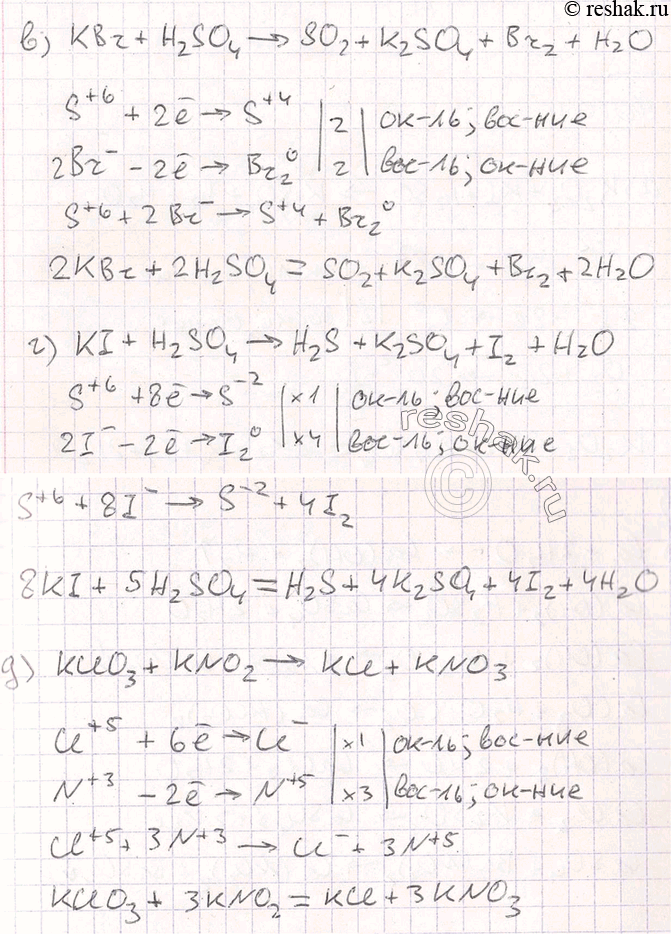 © reshak.ru
в) KBr + H₂SO₄ → SO₂ + K₂SO₄ + Br₂ + H₂O
S⁺⁶ + 2ē → S⁺⁴ | 2 | ок-ль; вос-ние
2Br⁻ - 2ē → Br₂⁰ | 2 | вос-ль; ок-ние
S⁺⁶ + 2Br⁻ → S⁺⁴ + Br₂⁰
2KBr + 2H₂SO₄ = SO₂ + K₂SO₄ + Br₂ + 2H₂O
г) KI + H₂SO₄ → H₂S + K₂SO₄ + I₂ + H₂O
S⁺⁶ + 8ē → S⁻² | x1 | ок-ль; вос-ние
2I⁻ - 2ē → I₂⁰ | x4 | вос-ль; ок-ние
reshak.ru
©
S⁺⁶ + 8I⁻ → S⁻² + 4I₂
8KI + 5H₂SO₄ = H₂S + 4K₂SO₄ + 4I₂ + 4H₂O
д) KClO₃ + KNO₂ → KCl + KNO₃
Cl⁺⁵ + 6ē → Cl⁻ | x1 | ок-ль; вос-ние
N⁺³ - 2ē → N⁺⁵ | x3 | вос-ль; ок-ние
Cl⁺⁵ + 3N⁺³ → Cl⁻ + 3N⁺⁵
KClO₃ + 3KNO₂ = KCl + 3KNO₃